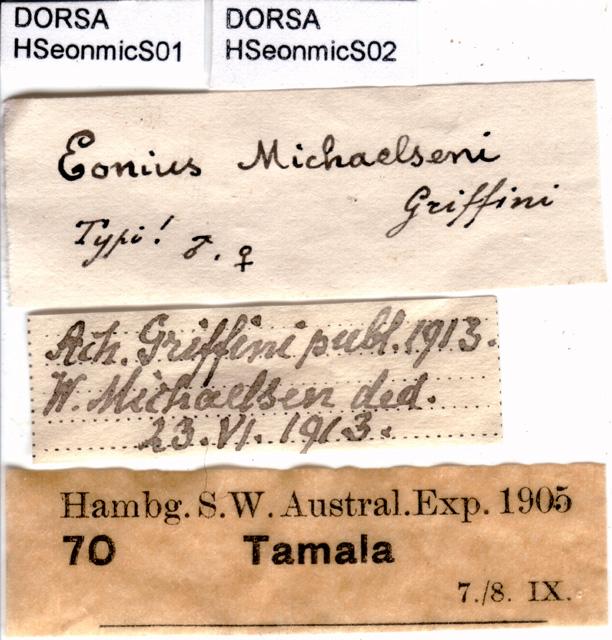 DORSA
HSeonmicS01
DORSA
HSeonmicS02
Eonius Michaelseni
Griffini
Typi! ♂. ♀
Ach. Griffini publ. 1913.
W. Michaelsen ded.
23. VI. 1913.
Hambg. S.W. Austral. Exp. 1905
70 Tamala
7./8. IX.